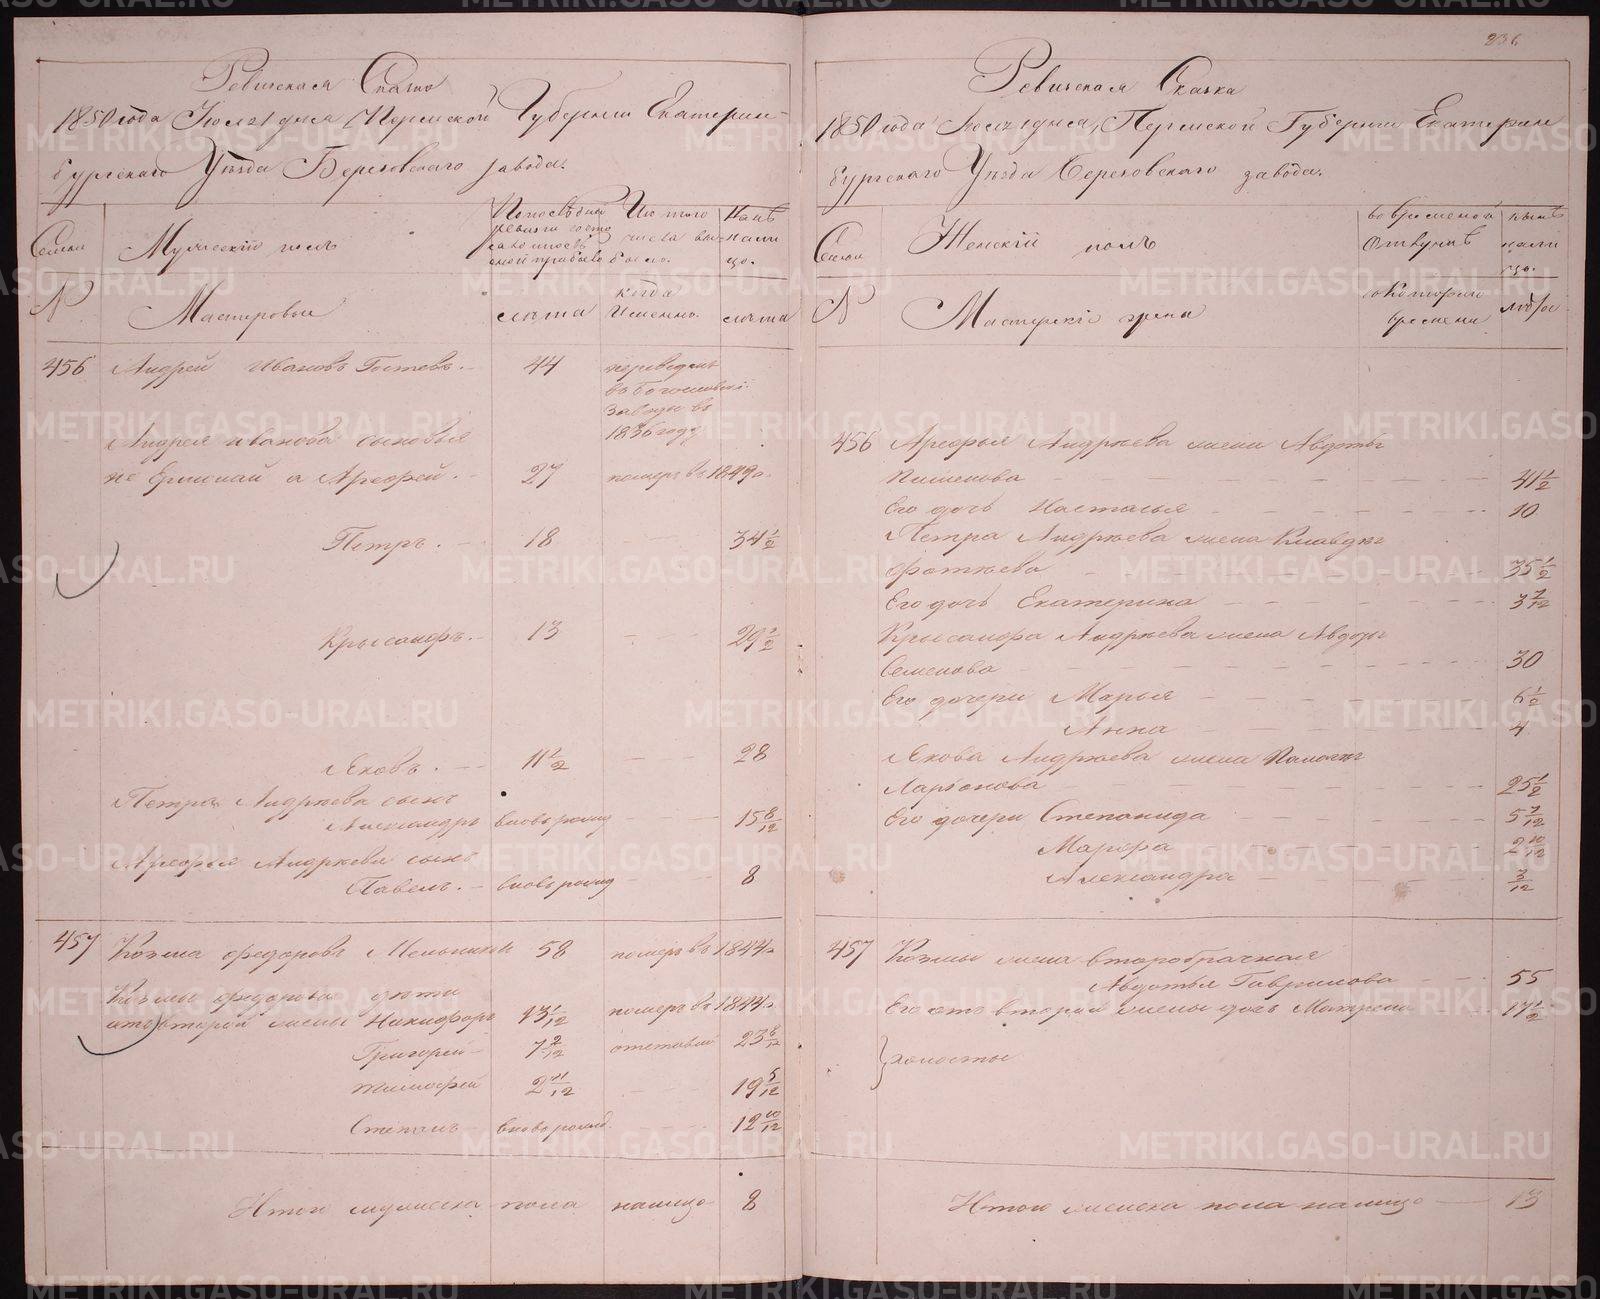 236
Ревизская Сказка
1850 года Июля 1 дня, Пермской Губернии Екатерин-
бургскаго Уезда Березовскаго завода.
Семьи
Мужескій полъ
По последней ревизіи состояло и после оной прибыло
Из того числа выбыло.
Ныне на лицо.
№
Мастеровые
лета
когда Именно.
лета
456 Андрей Ивановъ Гостевъ. 44 переведенъ
въ Богословскіе
заводы въ
1836 году
Андрея Иванова сыновья
не Ермолай а Арефей. 27 померъ въ 1849 г.
Петръ. 18 34 1/2
Крысанфъ. 13 29 1/2
Яковъ. 11 1/2 28
Петра Андреева сынъ
Александръ вновь рожд 15 8/12
Арефья Андреева сынъ
Павелъ. вновь рожд 8
457 Козма Федоровъ Мельниковъ 58 померъ въ 1844 г.
Козмы Федорова дети
отъ второй жены Никифоръ 13 1/12 померъ въ 1844 г.
Григорей 7 2/12 отставной 23 8/12
Тимофей 2 11/12 19 5/12
Степанъ вновь рожд. 12 10/12
Итого мужеска пола налицо 8
Ревизская Сказка
1850 года Июля 1 дня, Пермской Губерніи Екатерин
бургскаго Уезда Березовскаго завода.
Семьи
Женскій полъ
во временной отлучке
ныне на лицо.
№
Мастерскіе жена
с котораго времени
лета
456 Арефья Андреева жена Авдотья
Пименова 41 1/2
Его дочь Настасья 10
Петра Андреева жена Клавдея
Фотеева 35 1/2
Его дочь Екатерина 3 7/12
Крысанфа Андреева жена Авдотья
Семенова 30
Его дочери Марья 6 1/2
Анна 4
Якова Андреева жена Пелагея
Ларіонова 25 1/2
Его дочери Степанида 5 7/12
Марфа 2 10/12
Александра 3/12
457 Козмы жена второбрачная
Авдотья Гаврилова 55
Его отъ второй жены дочь Матрена 17 1/2
} холосты
Итого женска пола налицо 13
METRIKI.GASO-URAL.RU